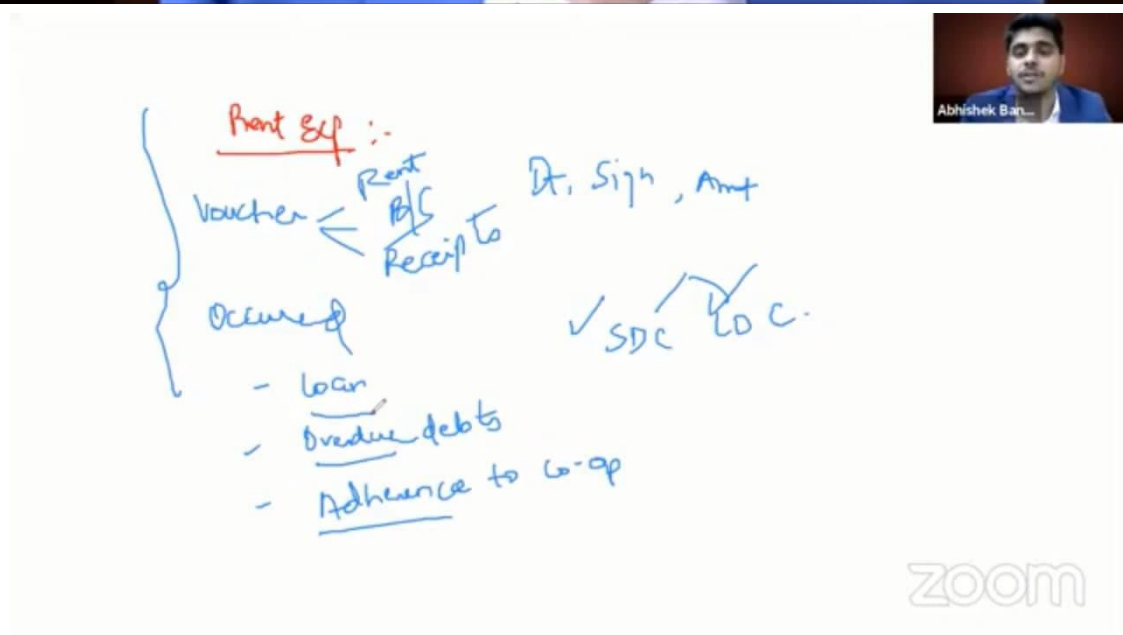 Abhishek Ban...
Rent Exp :-
Voucher
Rent
B/S
Receipts
Dt, Sign, Amt
Occured
SDC
LDC.
- Loan
- Overdue debts
- Adherence to co-op
zoom